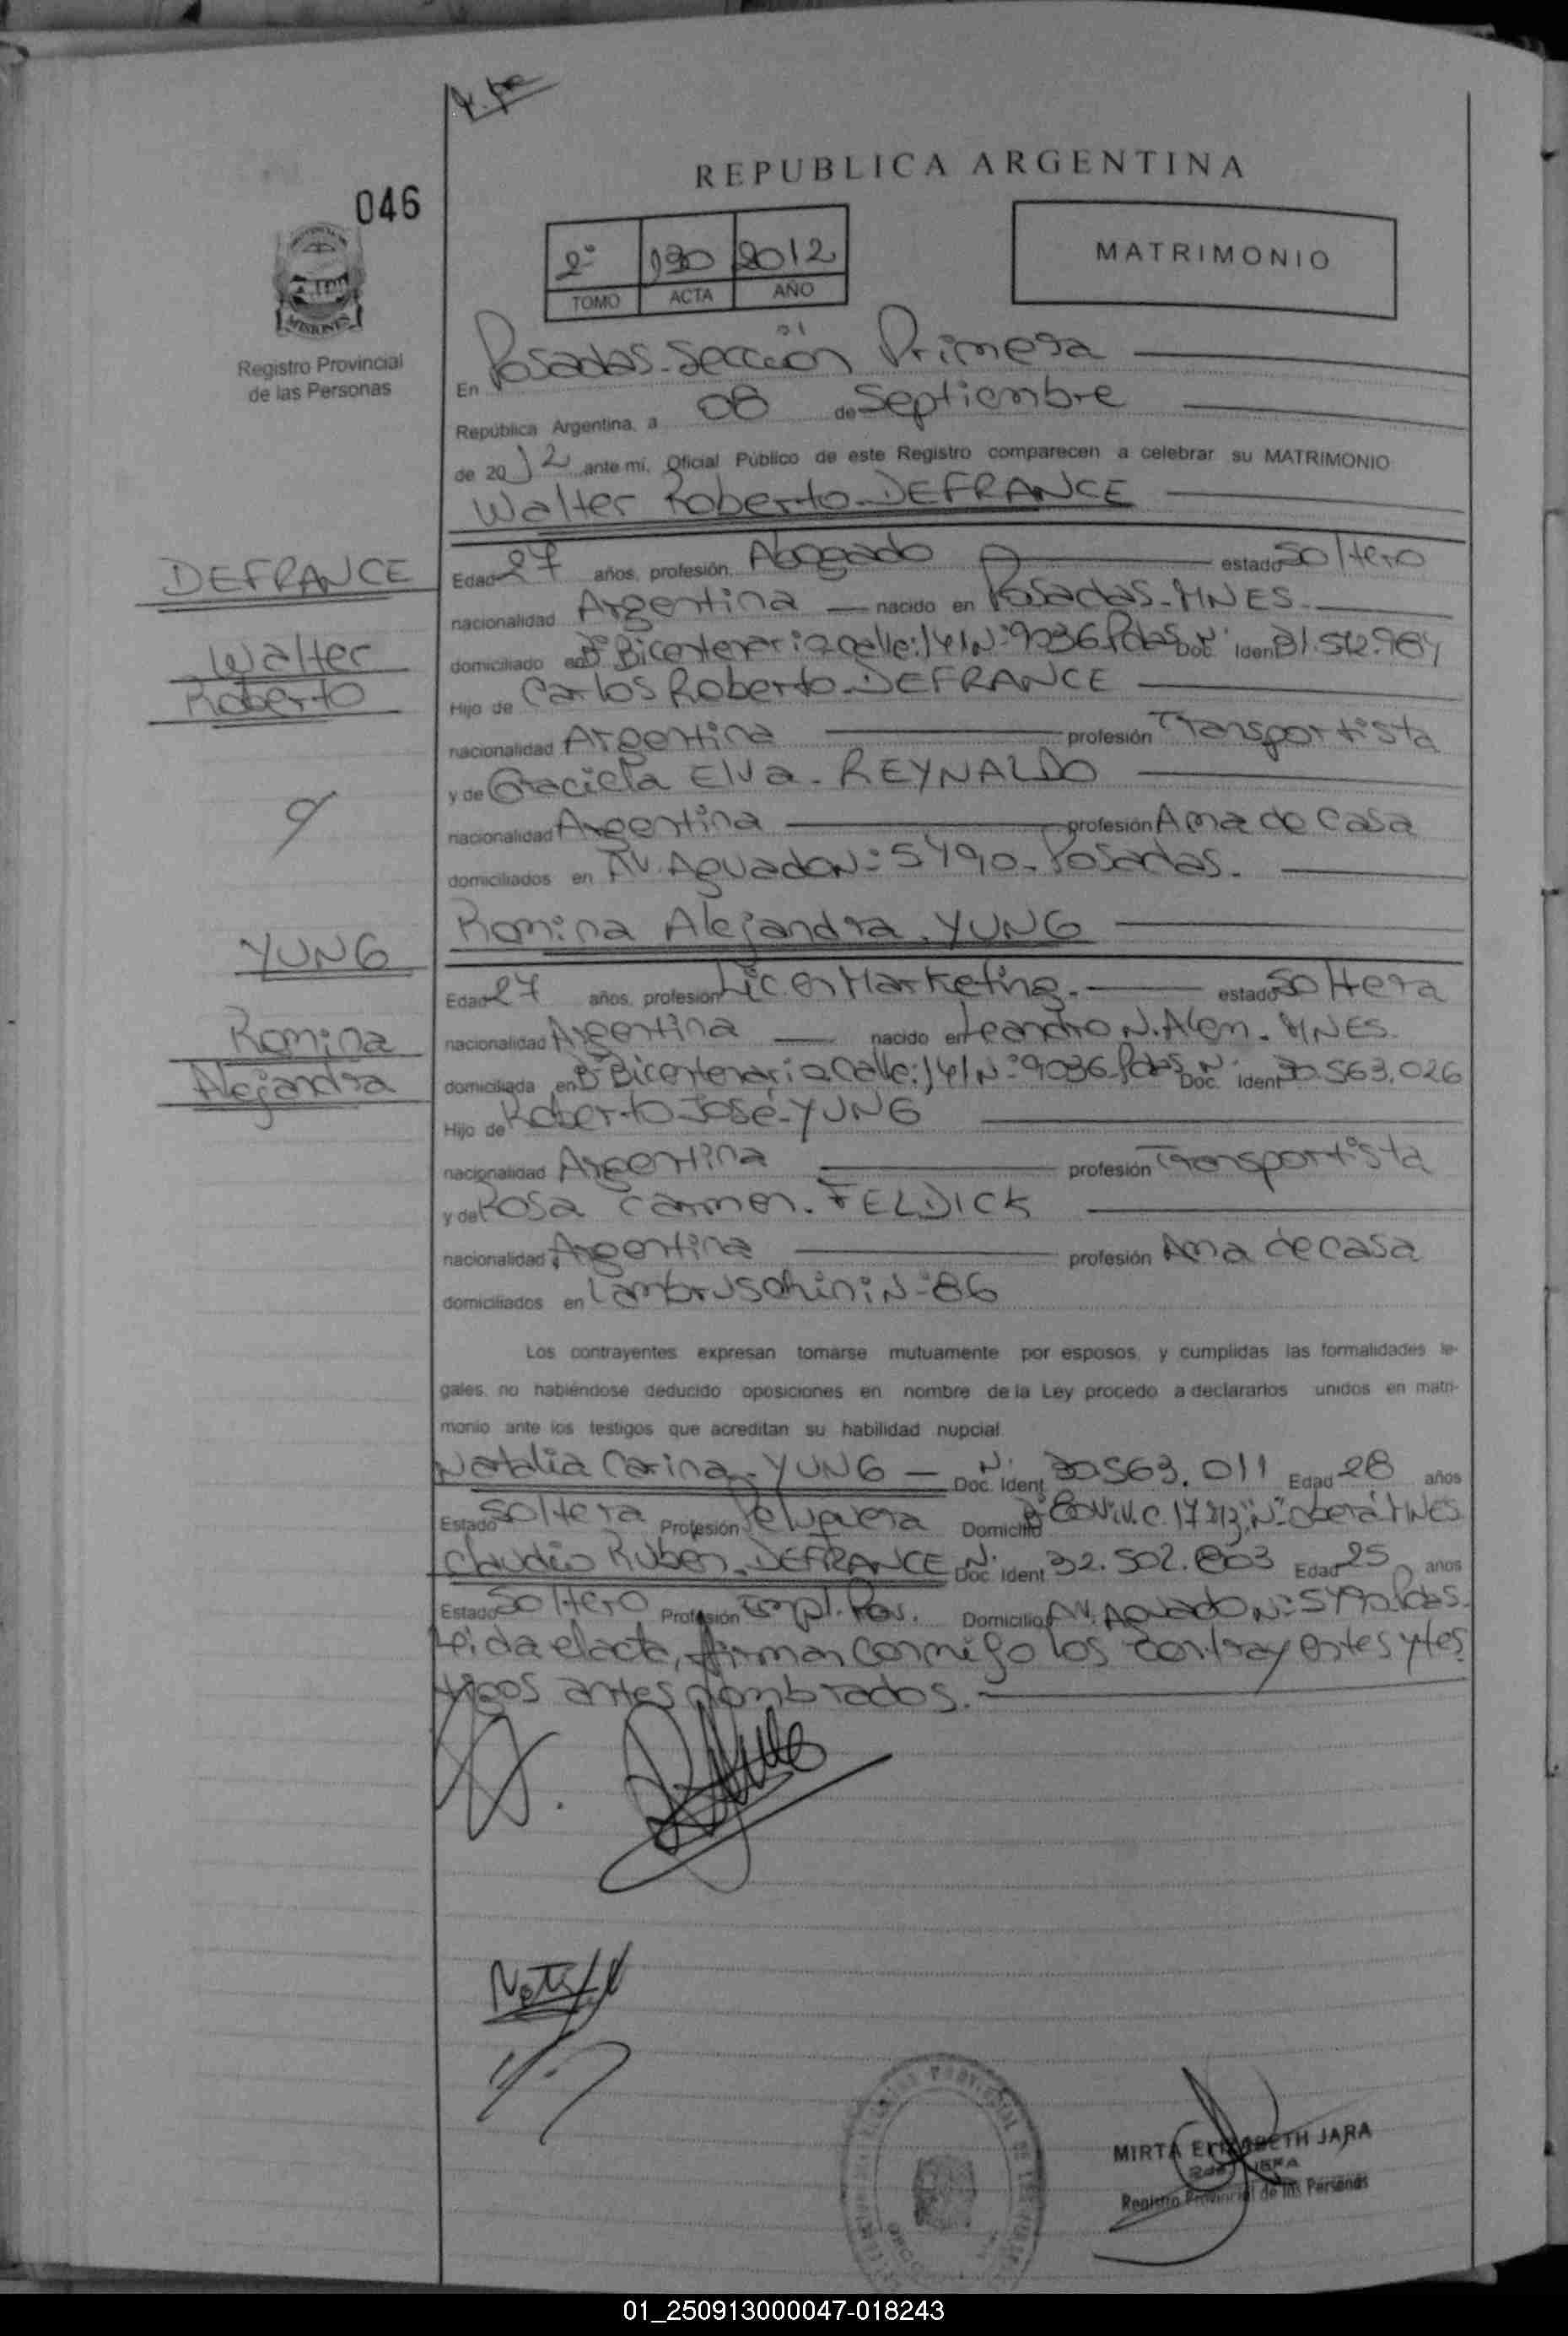 REPUBLICA ARGENTINA
046
2º 190 2012
TOMO ACTA AÑO
MATRIMONIO
MISIONES
Registro Provincial
de las Personas
En Posadas-Sección Primera
República Argentina, a 08 de Septiembre
de 2012 ante mí, Oficial Público de este Registro comparecen a celebrar su MATRIMONIO
Walter Roberto-DEFRANCE
DEFRANCE
Walter
Roberto
Edad 27 años, profesión, Abogado estado Soltero
nacionalidad Argentina nacido en Posadas-MNES.
domiciliado en Bº Bicentenario Calle:141Nº9036 Pdas Nº Doc. Ident 31.512.984
Hijo de Carlos Roberto-DEFRANCE
nacionalidad Argentina profesión Transportista
y de Graciela Elva-REYNALDO
nacionalidad Argentina profesión Ama de Casa
domiciliados en AV. Aguado Nº 5490-Posadas.
Romina Alejandra.YUNG
YUNG
Romina
Alejandra
Edad 27 años, profesión Lic. en Marketing. estado Soltera
nacionalidad Argentina nacido en Leandro N. Alem-MNES.
domiciliada en Bº Bicentenario Calle:141Nº9036 Pdas Nº Doc. Ident 30.563.026
Hijo de Roberto José-YUNG
nacionalidad Argentina profesión Transportista
y de Rosa Carmen.FELDICK
nacionalidad Argentina profesión Ama de casa
domiciliados en Lambruschini Nº 86
Los contrayentes expresan tomarse mutuamente por esposos, y cumplidas las formalidades le-
gales, no habiéndose deducido oposiciones en nombre de la Ley procedo a declararlos unidos en matri-
monio ante los testigos que acreditan su habilidad nupcial.
Natalia Carina-YUNG Nº Doc. Ident 30.563.011 Edad 28 años
Estado Soltera Profesión Peluquera Domicilio Oberá MNES
Claudio Ruben-DEFRANCE Nº Doc. Ident 32.502.803 Edad 25 años
Estado Soltero Profesión Empl. Domicilio AV. Aguado Nº 5490 Pdas.
Leida el acta, firman conmigo los contrayentes y tes
tigos antes nombrados.
MIRTA ELIZABETH JARA
Registro Provincial de las Personas
01_250913000047-018243